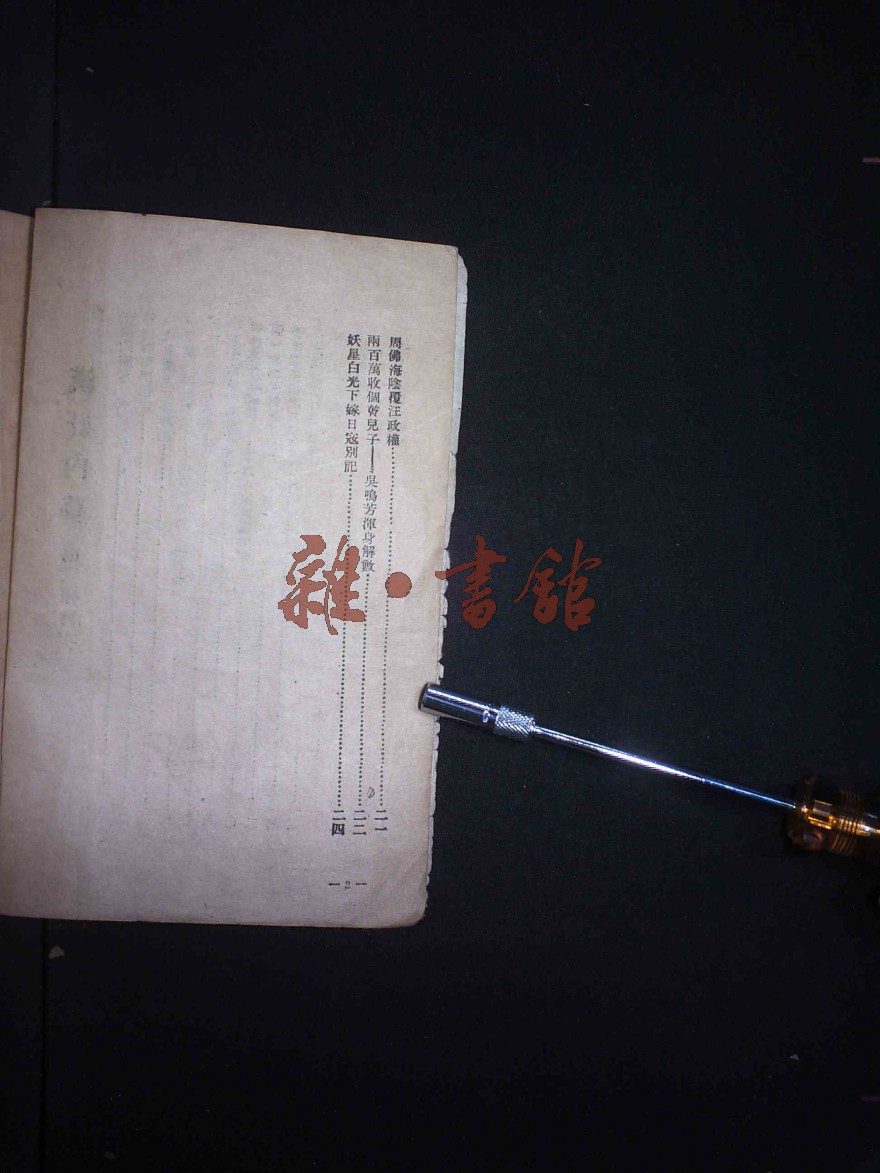 周佛海陰覆汪政權……二一
兩百萬收個乾兒子——吳鳴芳渾身解數……二二
妖星白光下嫁日寇別記……二四
— 2 —
雜·書館